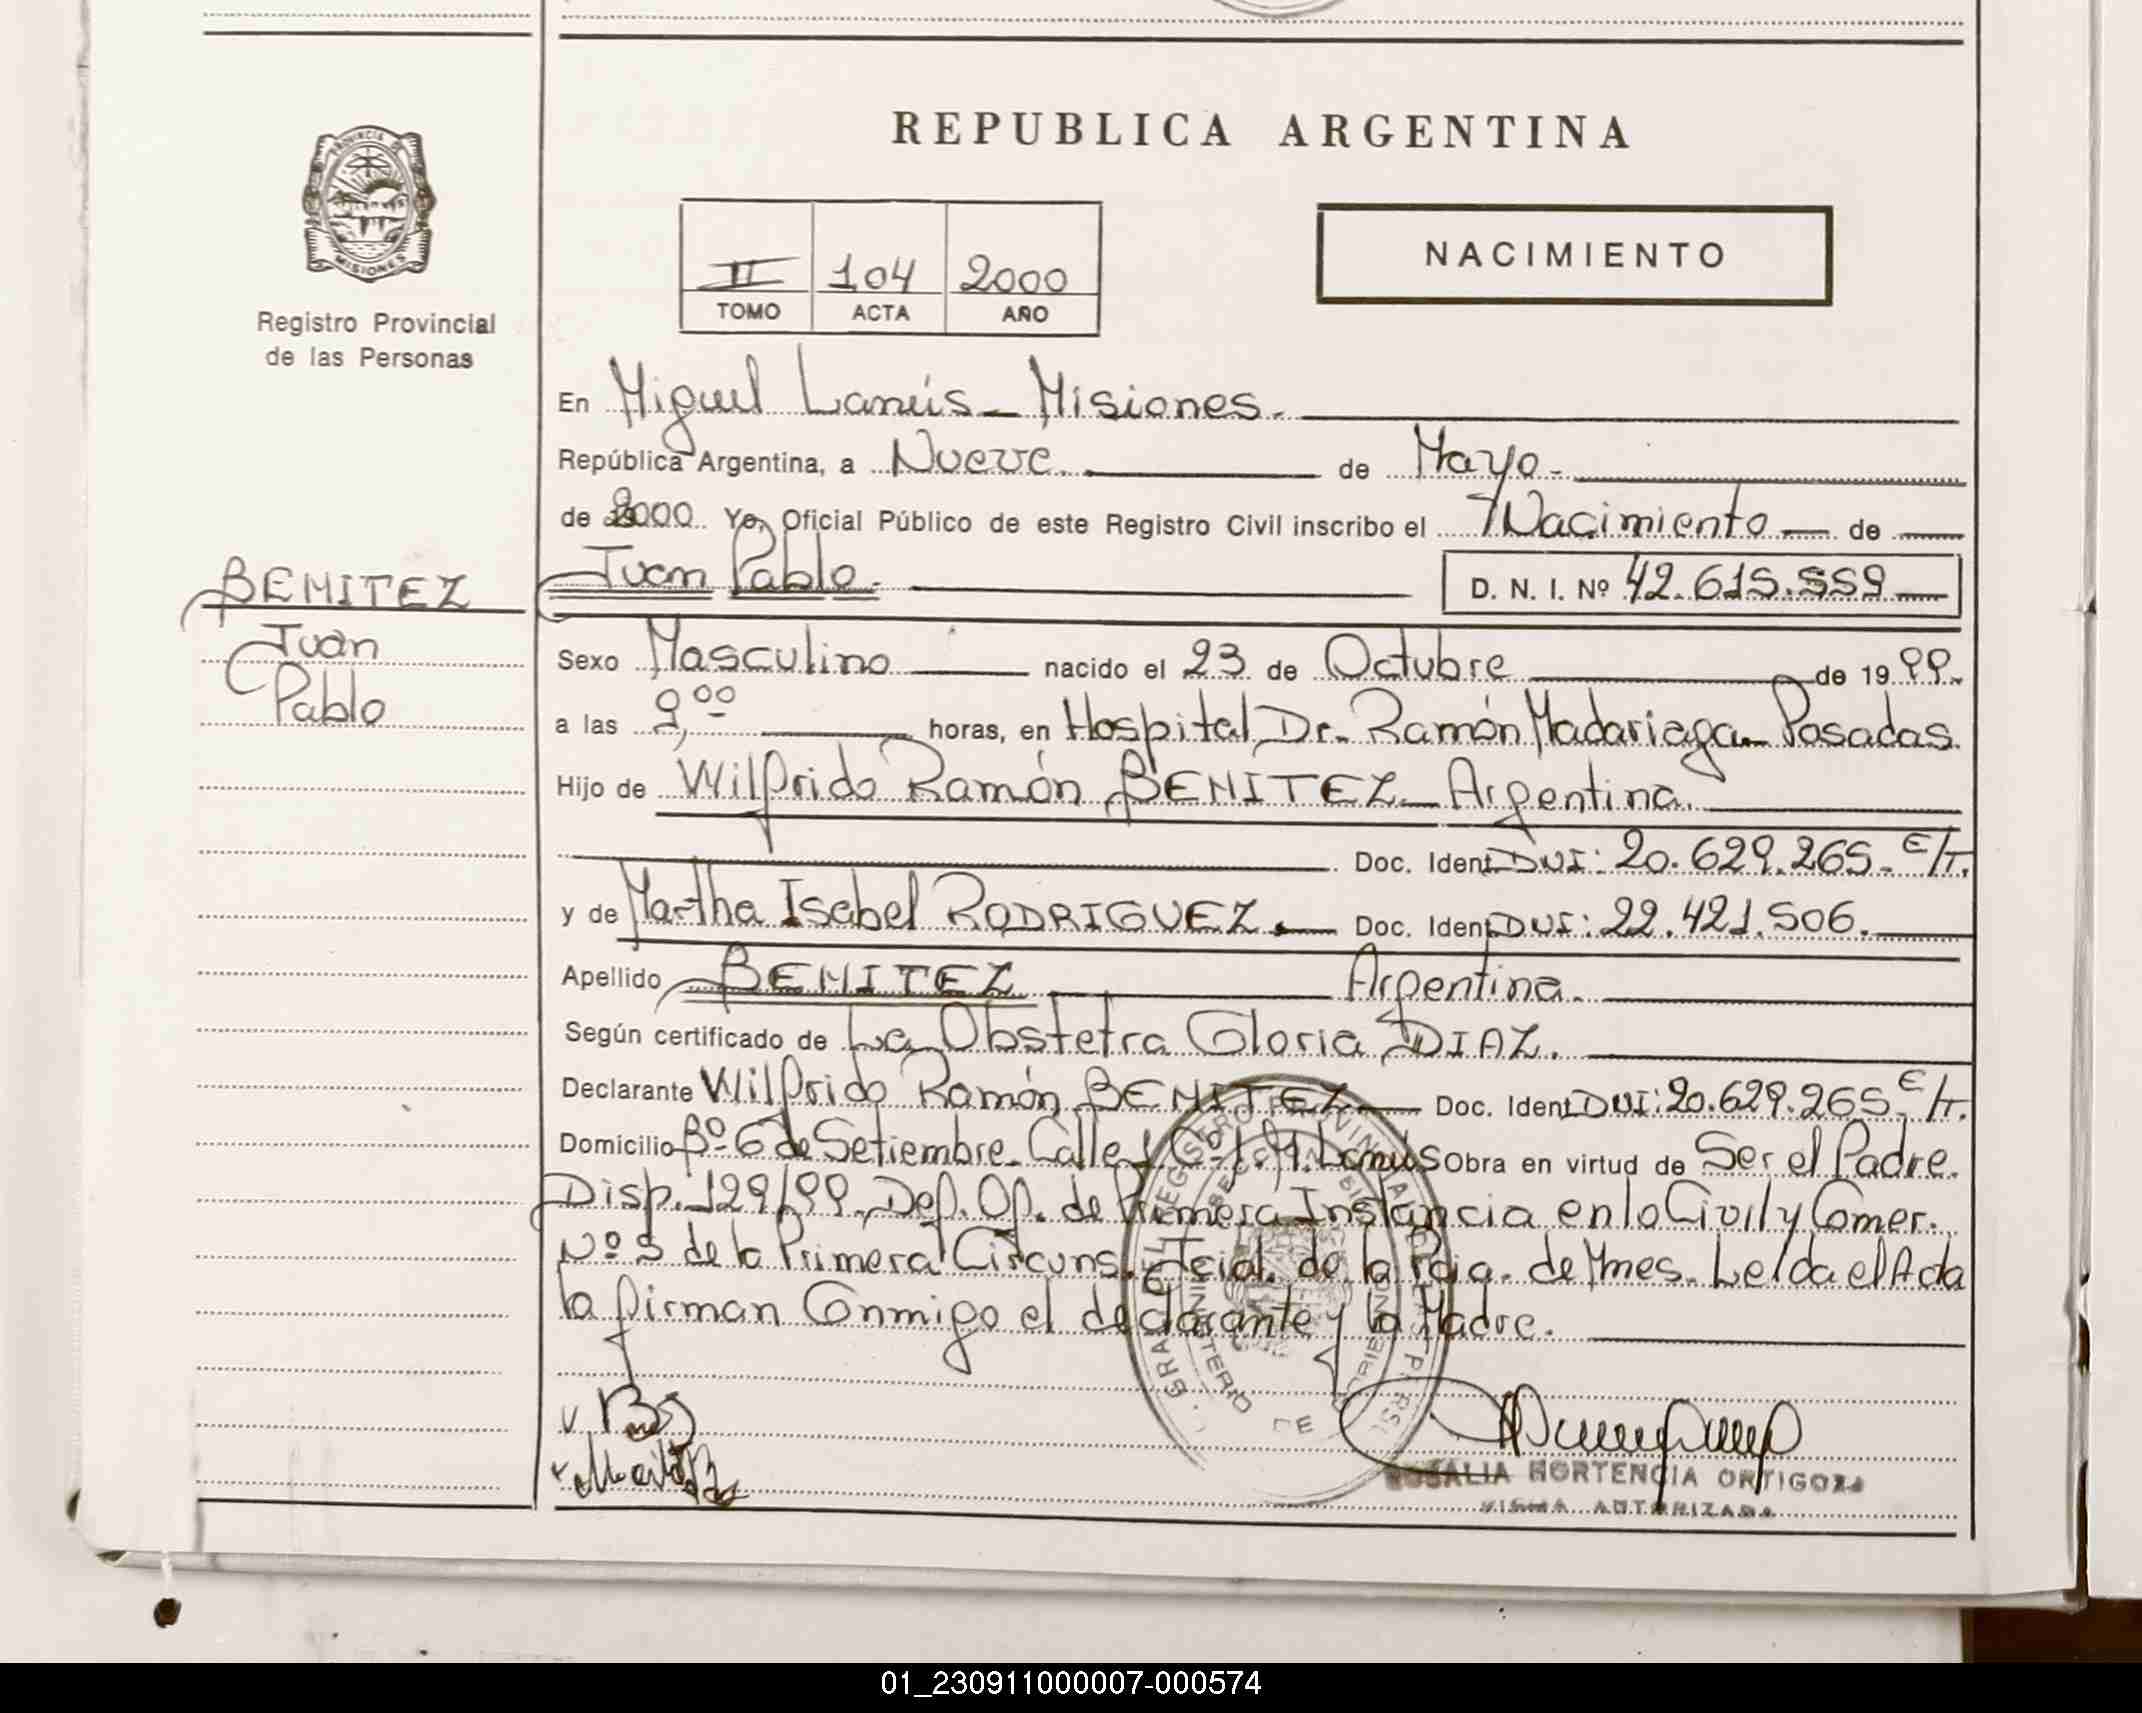 REPUBLICA ARGENTINA
PROVINCIA DE
MISIONES
Registro Provincial
de las Personas
II 104 2000
TOMO ACTA AÑO
NACIMIENTO
En Miguel Lanús - Misiones.
República Argentina, a Nueve. de Mayo.
de 2000 Yo, Oficial Público de este Registro Civil inscribo el Nacimiento de
Juan Pablo. D. N. I. Nº 42.615.559
BENITEZ
Juan
Pablo
Sexo Masculino nacido el 23 de Octubre de 1999.
a las 9,00 horas, en Hospital Dr. Ramón Madariaga - Posadas.
Hijo de Wilfrido Ramón BENITEZ - Argentina.
Doc. Ident. DNI: 20.629.265 - E/T.
y de Martha Isabel RODRIGUEZ. Doc. Ident. DNI: 22.421.506.
Apellido BENITEZ Argentina.
Según certificado de La Obstetra Gloria DIAZ.
Declarante Wilfrido Ramón BENITEZ Doc. Ident. DNI: 20.629.265 - E/T.
Domicilio Bº 6 de Setiembre - Calle 1 Cº 1. M. Lanús Obra en virtud de Ser el Padre.
Disp. 129/99 - Def. Of. de Primera Instancia en lo Civil y Comer.
Nº 5 de la Primera Circuns. Jcial. de la Pcia. de Mnes. Leida el Acta
la firman Conmigo el declarante y la Madre.
ROSALIA HORTENCIA ORTIGOZA
FIRMA AUTORIZADA
01_230911000007-000574